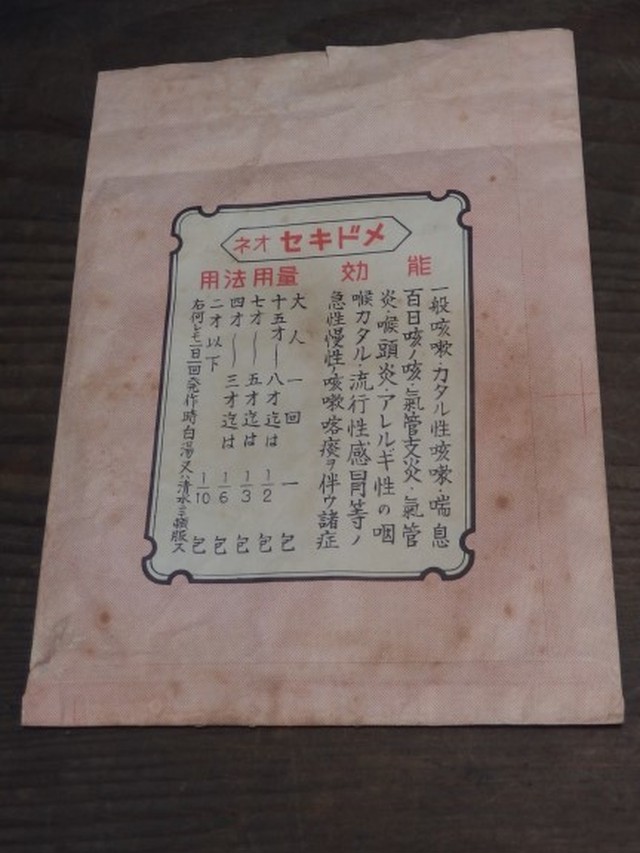 ネオ セキドメ
効能
一般咳嗽・カタル性咳嗽・喘息
百日咳ノ咳・氣管支炎・氣管
炎・喉頭炎・アレルギ性の咽
喉カタル・流行性感冒等ノ
急性慢性ノ咳嗽喀痰ヲ伴ウ諸症
用法用量
大人 一回 一包
十五才—八才迄は 1/2 包
七才—五才迄は 1/3 包
四才—三才迄は 1/6 包
二才以下 1/10 包
右何レモ一日一回発作時白湯又ハ清水ニテ頓服ス